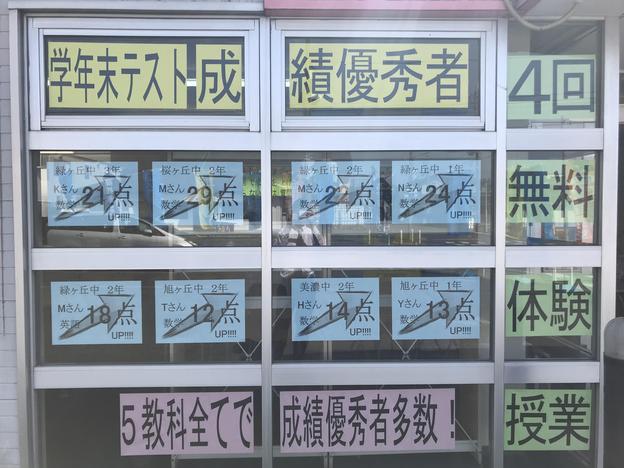 学年末テスト成績優秀者
4回
無料
体験
授業
緑ヶ丘中 3年
Kさん
数学
21点
UP!!!!
桜ヶ丘中 2年
Mさん
数学
29点
UP!!!!
緑ヶ丘中 2年
Mさん
数学
22点
UP!!!!
緑ヶ丘中 1年
Nさん
数学
24点
UP!!!!
緑ヶ丘中 2年
Mさん
英語
18点
UP!!!!
旭ヶ丘中 2年
Tさん
数学
12点
UP!!!!
美濃中 2年
Hさん
数学
14点
UP!!!!
旭ヶ丘中 1年
Yさん
数学
13点
UP!!!!
5教科全てで成績優秀者多数!